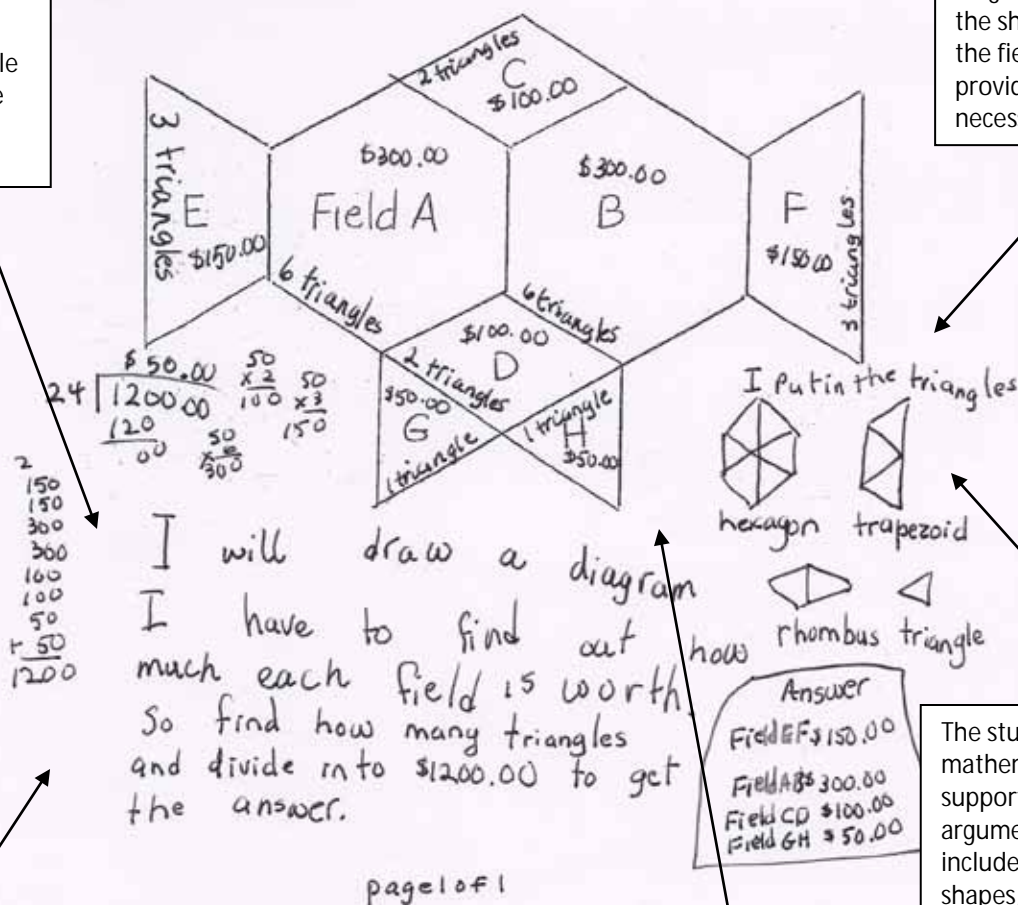 le
e
the sh
the fie
provid
necess
2 triangles
C
$100.00
3 triangles
E
$150.00
$300.00
Field A
6 triangles
$300.00
B
6 triangles
F
$150.00
3 triangles
$100.00
D
2 triangles
$50.00
G
1 triangle
1 triangle
H
$50.00
$50.00
24 1200.00
120
00
50
x 2
100
50
x 3
150
50
300
I Put in the triangles
hexagon trapezoid
rhombus triangle
2
150
150
300
300
100
100
50
+ 50
1200
I will draw a diagram
I have to find out how
much each field is worth.
So find how many triangles
and divide into $1200.00 to get
the answer.
Answer
Field EF $150.00
Field AB $300.00
Field CD $100.00
Field GH $50.00
page 1 of 1
The stu
mather
support
argume
include
shapes